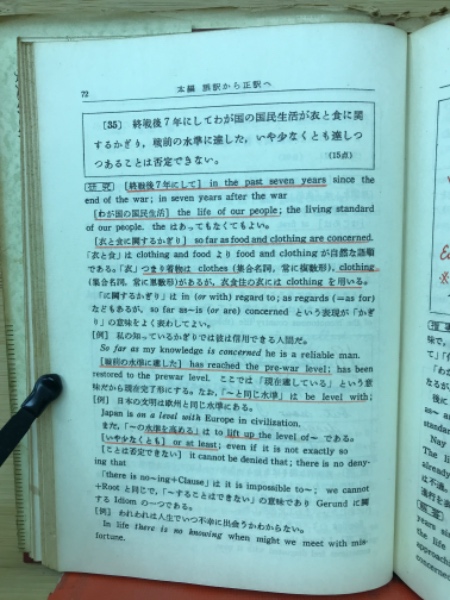 72
本編 誤訳から正訳へ
〔35〕 終戦後7年にしてわが国の国民生活が衣と食に関
するかぎり，戦前の水準に達した，いや少なくとも達しつ
つあることは否定できない。
(15点)
研究 [終戦後7年にして] in the past seven years since the
end of the war; in seven years after the war
[わが国の国民生活] the life of our people; the living standard
of our people. the はあってもなくてもよい。
[衣と食に関するかぎり] so far as food and clothing are concerned.
「衣と食」は clothing and food より food and clothing が自然な語順
である。「衣」つまり着物は clothes (集合名詞，常に複数形)，clothing
(集合名詞，常に単数形)があるが，衣食住の衣には clothing を用いる。
「に関するかぎり」は in (or with) regard to; as regards (=as for)
などもあるが，so far as～is (or are) concerned という表現が「かぎ
り」の意味をよく表わしてよい。
[例] 私の知っているかぎりでは彼は信用できる人間だ。
So far as my knowledge is concerned he is a reliable man.
[戦前の水準に達した] has reached the pre-war level; has been
restored to the prewar level. ここでは「現在達している」という意
味だから現在完了形にする。なお，「～と同じ水準」は be level with;
[例] 日本の文明は欧州と同じ水準にある。
Japan is on a level with Europe in civilization.
また，「～の水準を高める」は to lift up the level of～ である。
[いや少なくとも] or at least; even if it is not exactly so
[ことは否定できない] it cannot be denied that; there is no deny-
ing that
「there is no～ing+Clause」は it is impossible to～; we cannot
+Root と同じで，「～することはできない」の意味であり Gerund に関
する Idiom の一つである。
[例] われわれは人生でいつ不幸に出会うかわからない。
In life there is no knowing when might we meet with mis-
fortune.